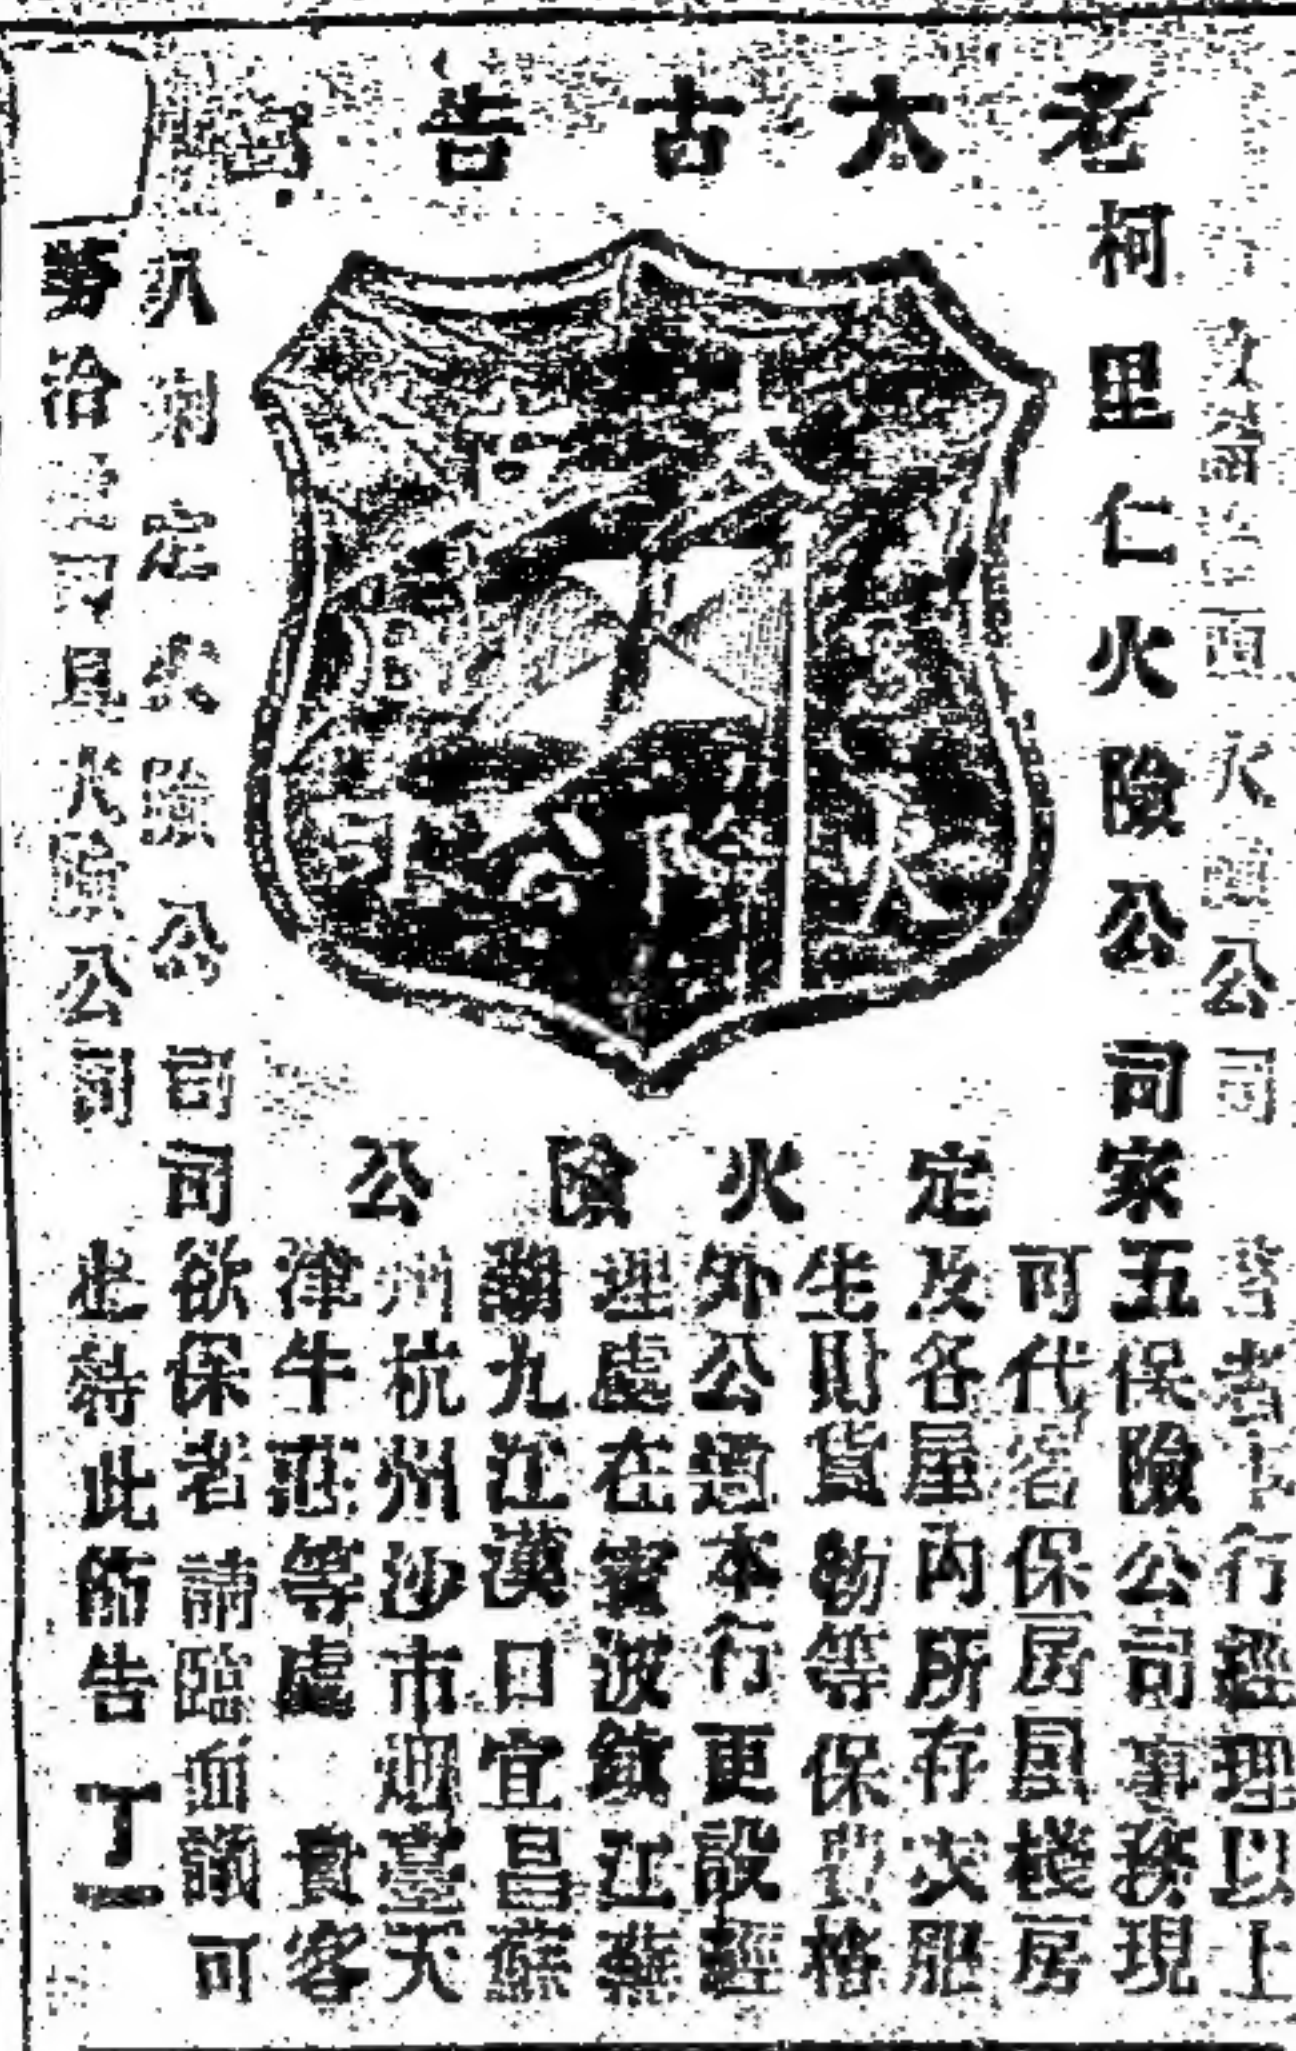 老太古告白
火險公司
柯里仁火險公司
太古
保
火險公司
扒刺定火險公司
火險公司
定火險公司
啓者本行經理以上
家五保險公司事務現
可代客保房屋棧房
及各屋內所存衣服
生財貨物等保費格
外公道本行更設經
理處在寧波鎮江蕪
湖九江漢口宜昌蘇
州杭州沙市烟臺天
津牛莊等處 貴客
欲保者請臨面議可
也特此佈告 丁